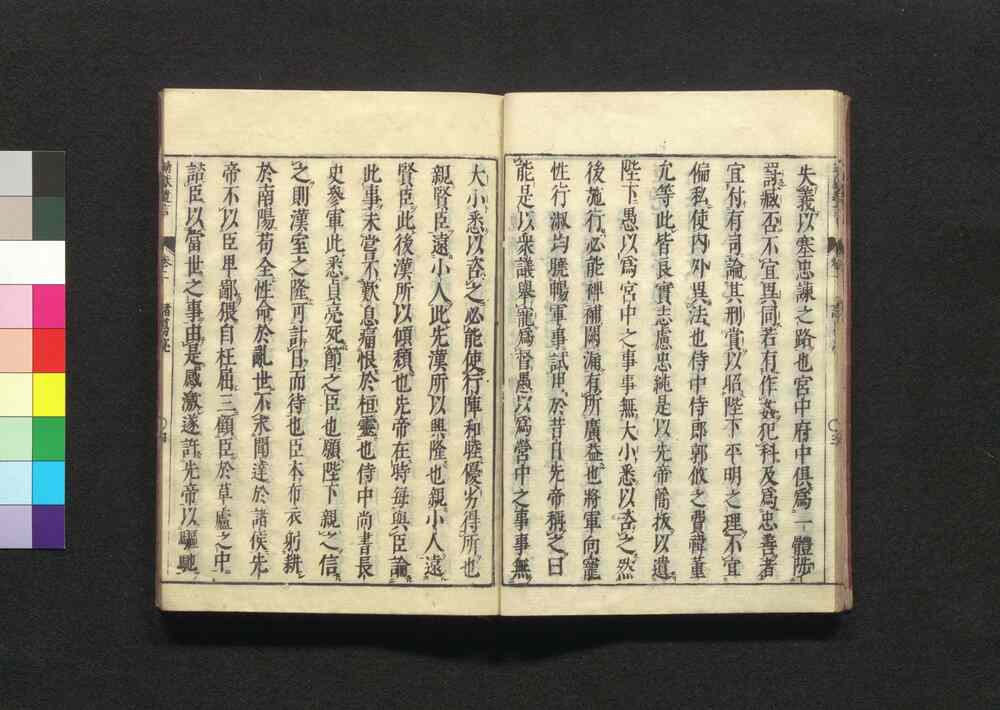 失義以塞忠諫之路也宮中府中俱爲一體陟
罸臧否不宜異同若有作姦犯科及爲忠善者
宜付有司論其刑賞以昭陛下平明之理不宜
偏私使內外異法也侍中侍郎郭攸之費禕董
允等此皆良實志慮忠純是以先帝簡拔以遺
陛下愚以爲宮中之事事無大小悉以咨之然
後施行必能裨補闕漏有所廣益也將軍向寵
性行淑均曉暢軍事試用於昔日先帝稱之曰
能是以衆議舉寵爲督愚以爲營中之事事無
大小悉以咨之必能使行陣和睦優劣得所也
親賢臣遠小人此先漢所以興隆也親小人遠
賢臣此後漢所以傾頹也先帝在時每與臣論
此事未嘗不歎息痛恨於桓靈也侍中尚書長
史參軍此悉貞亮死節之臣也願陛下親之信
之則漢室之隆可計日而待也臣本布衣躬耕
於南陽苟全性命於亂世不求聞達於諸侯先
帝不以臣卑鄙猥自枉屈三顧臣於草廬之中
諮臣以當世之事由是感激遂許先帝以驅馳